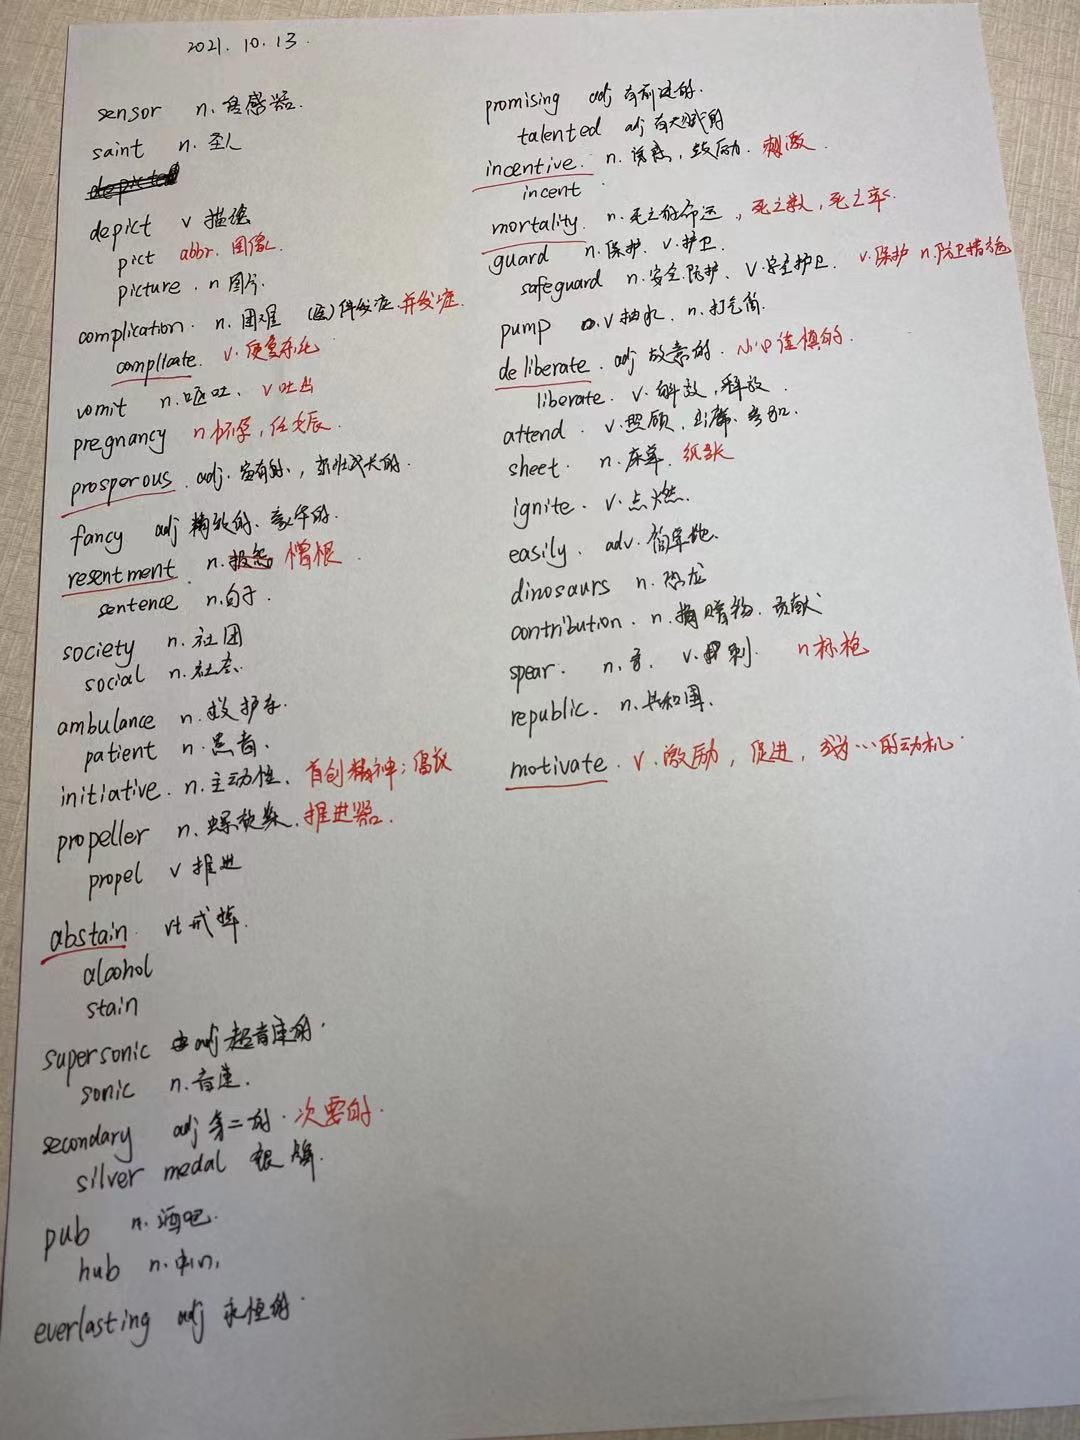 2021. 10. 13.
sensor n. 传感器.
saint n. 圣人
depict v 描绘
pict abbr. 图像
picture. n 图片.
complication. n. 困难 (医)并发症 并发症.
complicate. v. 使复杂化
vomit n. 呕吐. v 吐出
pregnancy n 怀孕, 妊娠.
prosperous. adj. 富有的, 茁壮成长的.
fancy adj 精致的、豪华的.
resentment. n. 憎恨
sentence n. 句子.
society n. 社团
social n. 社交.
ambulance n. 救护车.
patient n. 患者.
initiative. n. 主动性、首创精神; 倡议
propeller n. 螺旋桨. 推进器.
propel v 推进
abstain. vt 戒掉.
alcohol
stain
supersonic adj 超音速的.
sonic n. 音速.
secondary adj 第二的. 次要的.
silver medal 银牌.
pub n. 酒吧.
hub n. 中心.
everlasting adj 永恒的.
promising adj 有前途的.
talented adj 有天赋的
incentive. n. 诱惑, 鼓励. 刺激.
incent
mortality. n. 死亡的命运, 死亡数, 死亡率.
guard n. 保护. v. 护卫.
safeguard n. 安全防护、v. 安全护卫. v. 保护 n. 防卫措施
pump v 抽水. n. 打气筒.
deliberate. adj 故意的. 小心谨慎的.
liberate. v. 解放, 释放.
attend. v. 照顾. 出席. 参加.
sheet. n. 床单. 纸张
ignite. v. 点燃.
easily. adv. 简单地.
dinosaurs n. 恐龙
contribution. n. 捐赠物. 贡献
spear. n. 矛. v. 刺. n 标枪
republic. n. 共和国.
motivate. v. 激励, 促进, 成为…的动机.